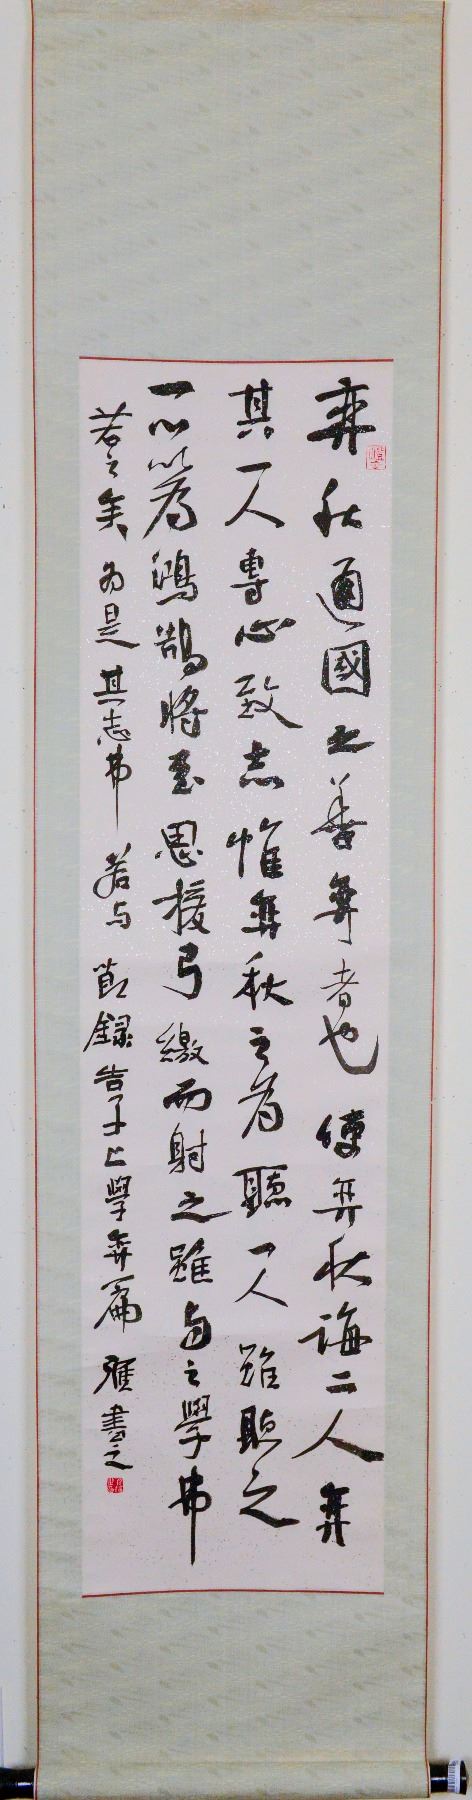 弈秋通國之善弈者也使弈秋誨二人弈
其一人專心致志惟弈秋之為聽一人雖聽之
一心以為鴻鵠將至思援弓繳而射之雖與之學弗
若之矣為是其志弗若与節録告子上學弈篇 書之